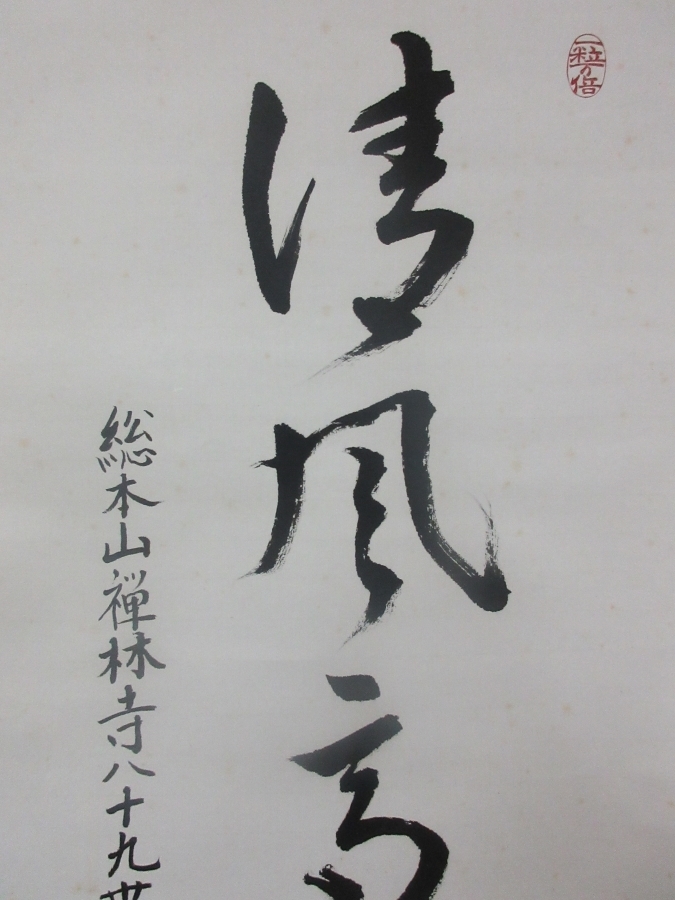 一粒万倍
清風高
総本山禅林寺八十九世